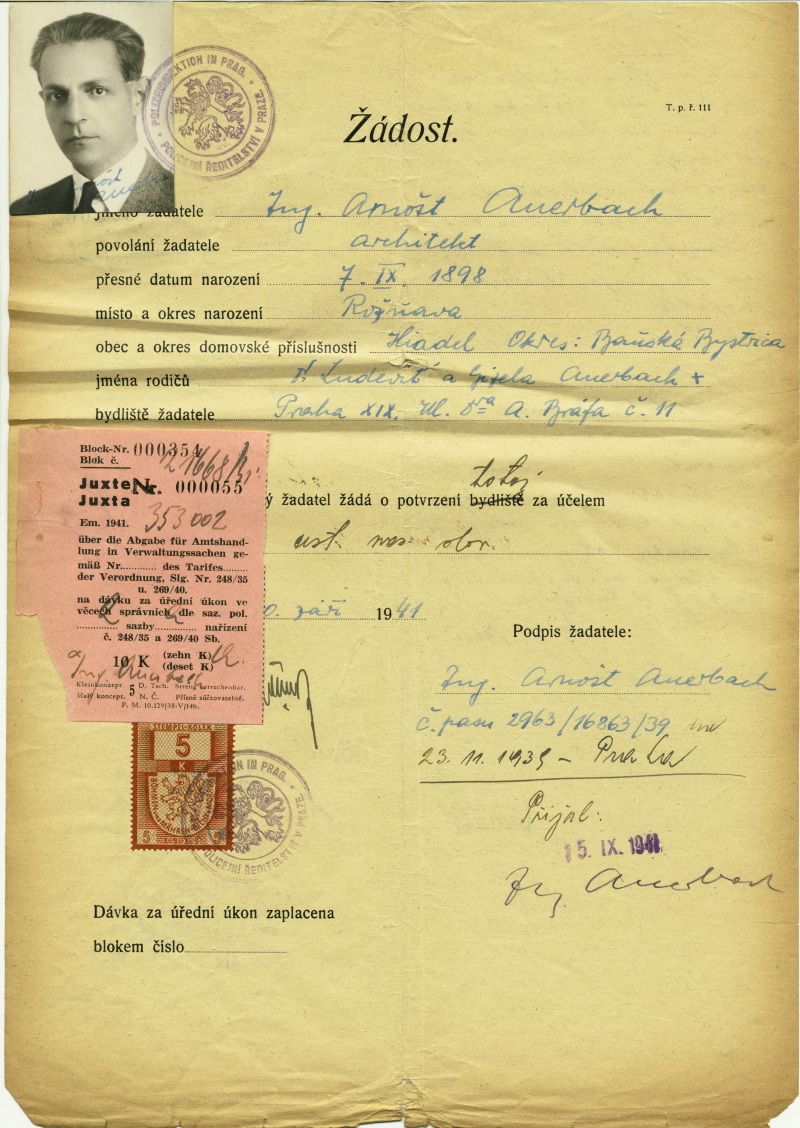 POLIZEIDIREKTION IN PRAG.
POLICEJNÍ ŘEDITELSTVÍ V PRAZE.
T. p. ř. 111
Žádost.
jméno žadatele Ing. Arnošt Auerbach
povolání žadatele architekt
přesné datum narození 7. IX. 1898
místo a okres narození Rožňava
obec a okres domovské příslušnosti Hiadel Okres: Baňská Bystrica
jména rodičů Ludevít a Gisela Auerbach
bydliště žadatele Praha XIX, Ul. Dra A. Bráfa č. 11
ý žadatel žádá o potvrzení bydliště za účelem
totož
září 1941
Podpis žadatele:
Ing. Arnošt Auerbach
č. pasu 2963/16863/39
23. 11. 1939 – Praha
Přijal:
15. IX. 1941
Ing Auerbach
Block-Nr. 000354
Blok č.
Juxte Nr. 000055
Juxta
Em. 1941. 353002
über die Abgabe für Amtshand-
lung in Verwaltungssachen ge-
mäß Nr. des Tarifes
der Verordnung, Slg. Nr. 248/35
u. 269/40.
na dávku za úřední úkon ve
věcech správních dle saz. pol.
sazby nařízení
č. 248/35 a 269/40 Sb.
10 K (zehn K)
(deset K)
Ing Auerbach
Kleinkonzept 5 D. Tsch. Streng verrechenbar.
Malý koncept. N. Č. Přísně zúčtovatelné.
F. M. 10.129/38-V/14b.
STEMPEL-KOLEK
5
K
POLICEJNÍ ŘEDITELSTVÍ V PRAZE.
Dávka za úřední úkon zaplacena
blokem číslo